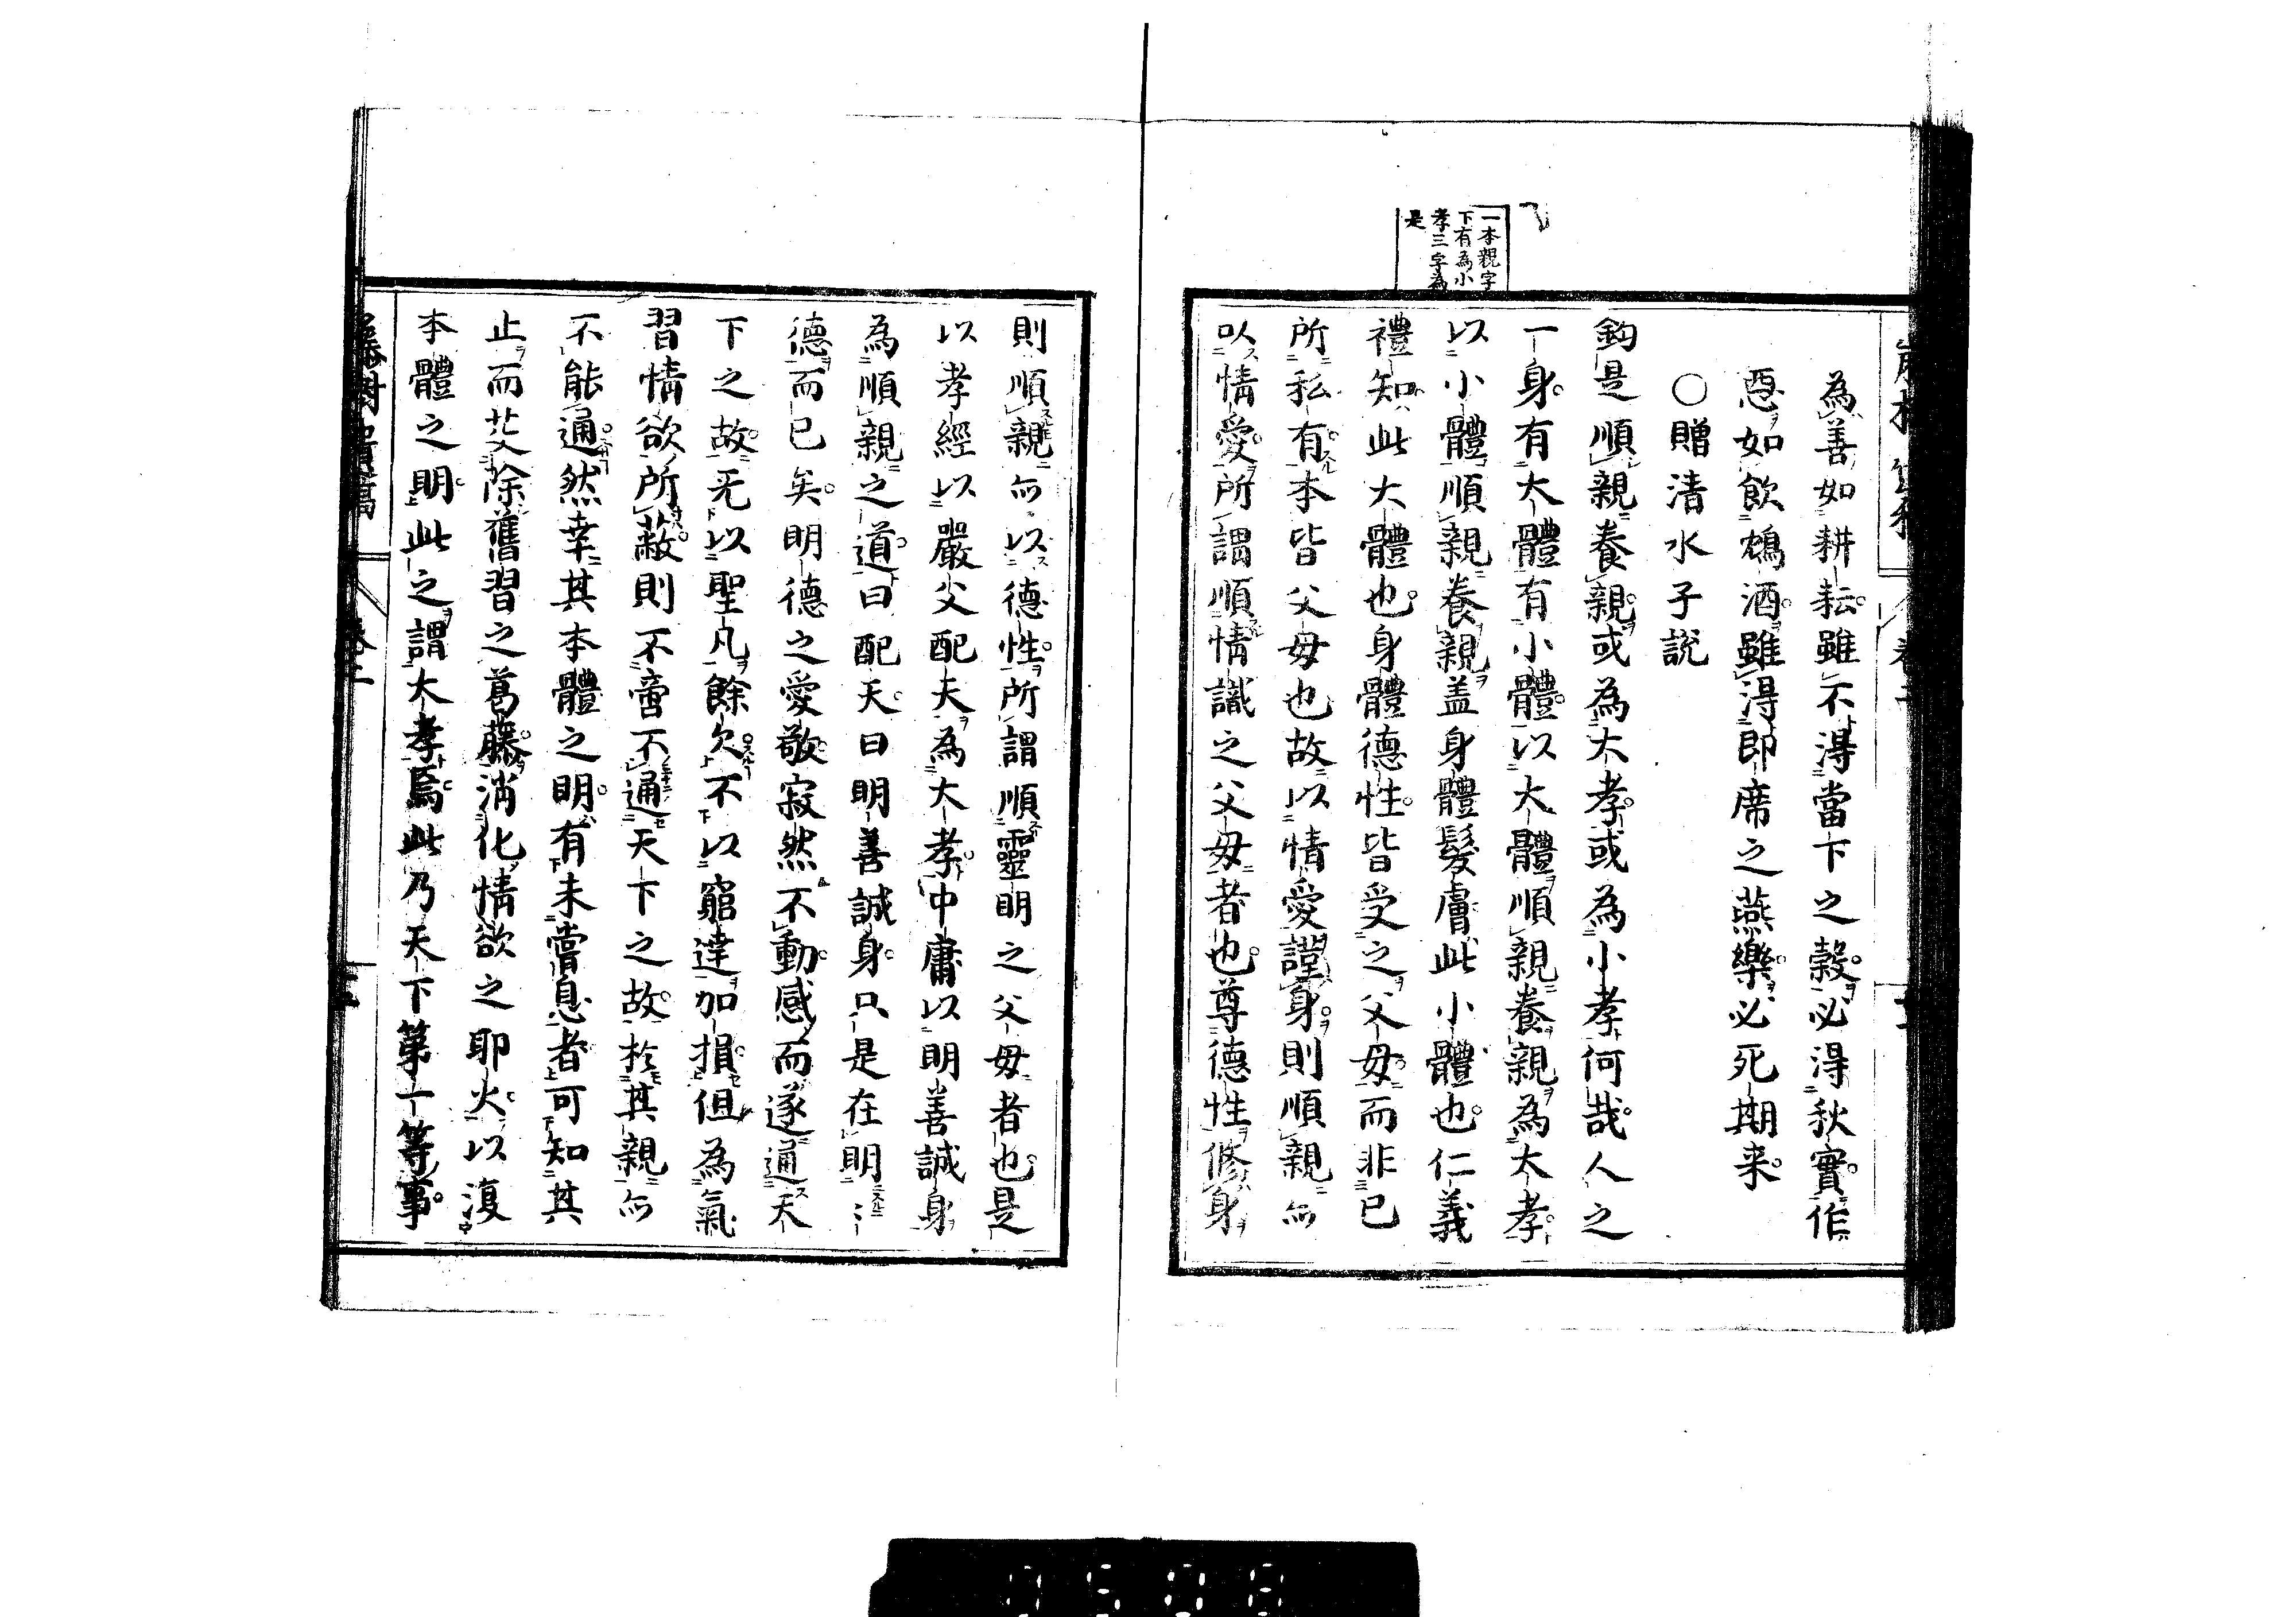 一本親字
下有為小
孝三字為
是
為善如耕耘雖不得當下之穀必得秋實作
惡如飲鴆酒雖得即席之燕樂必死期来
○贈清水子説
鈞是順親養親或為大孝或為小孝何哉人之
一身有大體有小體以大體順親養親為大孝
以小體順親養親盖身體髮膚此小體也仁義
禮知此大體也身體德性皆受之父母而非已
所私有本皆父母也故以情愛謹身則順親而
以情愛所謂順情識之父母者也尊德性修身
則順親而以德性所謂順靈明之父母者也是
以孝經以嚴父配天為大孝中庸以明善誠身
為順親之道曰配天曰明善誠身只是在明〻
德而已矣明德之愛敬寂然不動感而遂通天
下之故无以聖凡餘欠不以窮達加損但為氣
習情欲所蔽則不啻不通天下之故於其親而
不能通然幸其本體之明有未嘗息者可知其
止而芟除舊習之葛藤消化情欲之耶火以復
本體之明此之謂大孝焉此乃天下第一等事
卷二